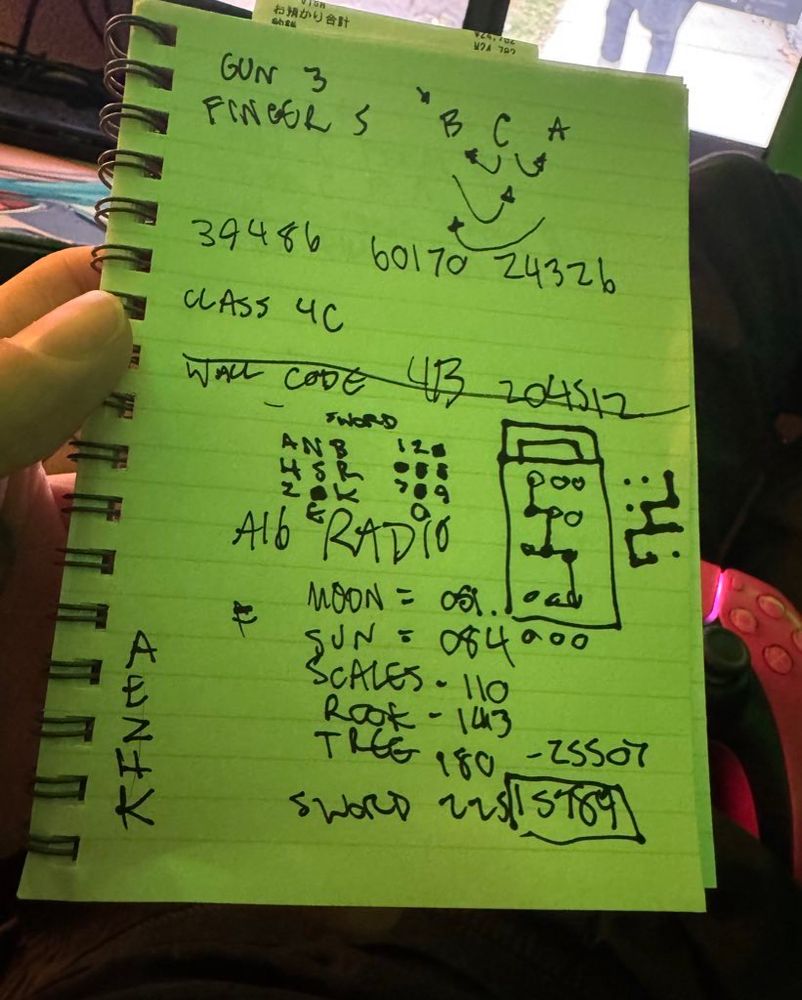 お預かり合計
¥24,782
GUN 3
FINGER 5
B C A
39486 60170 24326
CLASS 4C
WALL CODE 4B 204512
SWORD
ANB
HSR
K
E
A16 RADIO
MOON =
SUN = 084
SCALES - 110
ROOK - 143
TREE 180 - 25507
SWORD 225 15789
AEZHK